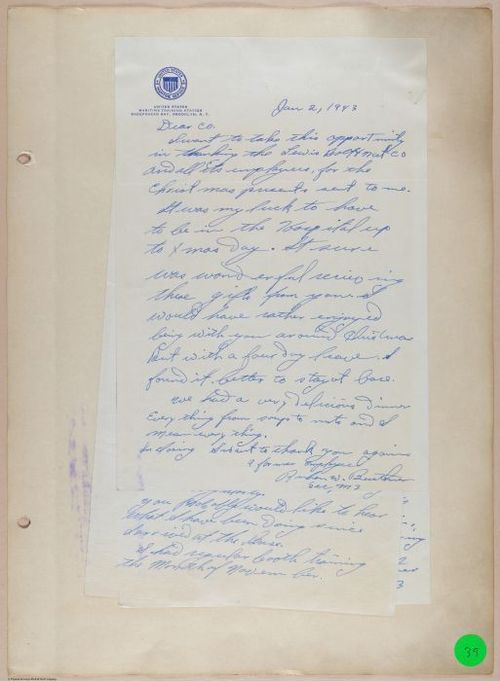 UNITED STATES
MARITIME TRAINING STATION
SHEEPSHEAD BAY, BROOKLYN, N.Y.
Jan 2, 1943
Dear Co.
I want to take this opportunity
in thanking the Lewis Bolt & Nut Co
and all its employees, for the
Christmas presents sent to me.
It was my luck to have
to be in the Hospital up
to Xmas Day. It sure
was wonderful
these gifts from you & I
would have rather enjoyed
being with you around
But with a four day leave. I
found it better to stay at base.
We had a very delicious dinner
Every thing from soup to nuts and I
mean every thing.
In closing I want to thank you again
A former Employee
Sec, M3
you probably would like to hear
What I have been doing since
I arrived at the base.
I had regular booth training
the Month of November.
39